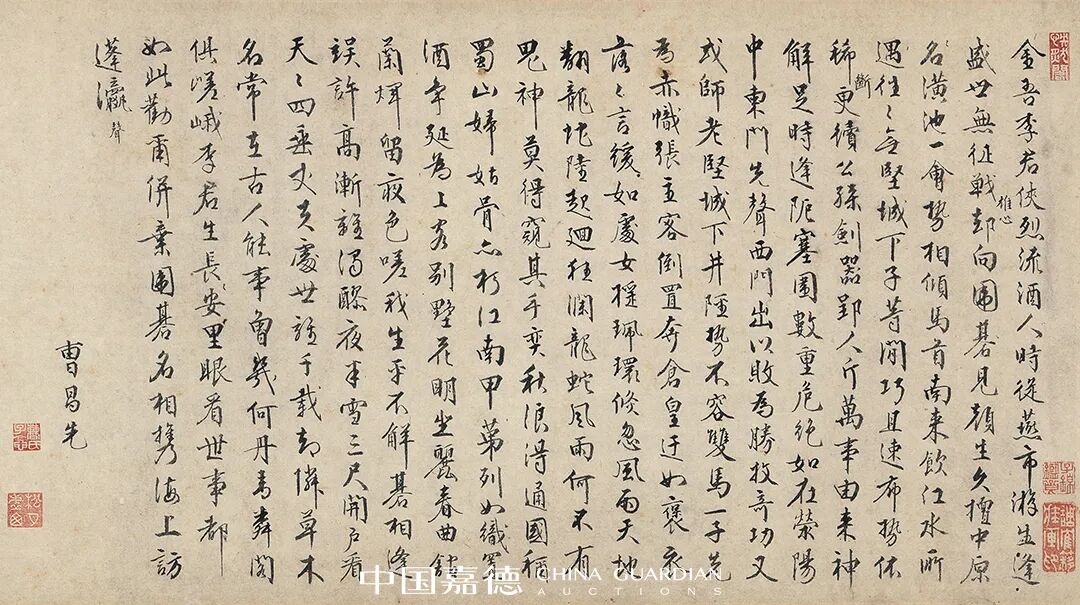 金吾李君俠烈流酒人時從燕市游生逢
盛世無征戰雄心却向圍碁見顏生久擅中原
名潢池一會勢相傾馬首南来飲江水所
遇往〻無堅城下子等閒巧且速布勢依
稀斷更續公孫劍器郢人斤萬事由来神
解足時逢阨塞圍數重危絕如在滎陽
中東門先聲西門出以敗為勝收奇功又
或師老堅城下井陘勢不容雙馬一子先
為亦幟張主客倒置奔倉皇迂如褒衣
落〻言緩如處女搖珮環倐忽風雨天地
翻龍地陸起迴狂瀾龍蛇風雨何不有
鬼神莫得窺其手奕秋浪得通國稱
蜀山婦姑骨亦朽江南甲第列如織置
酒争延為上客别墅花明坐麗春曲
蘭煇留夜色嗟我生平不解碁相逢
誤許高漸離濁醪夜半雪三尺開户看
天〻四垂丈夫處世誰千載却憐草木
名常在古人能事曾幾何丹青麟閣
俱嵯峨李君生長安里眼看世事都
如此勸爾併棄圍碁名相携海上訪
蓬瀛
聲
曹昌先
中国嘉德 CHINA GUARDIAN
AUCTIONS